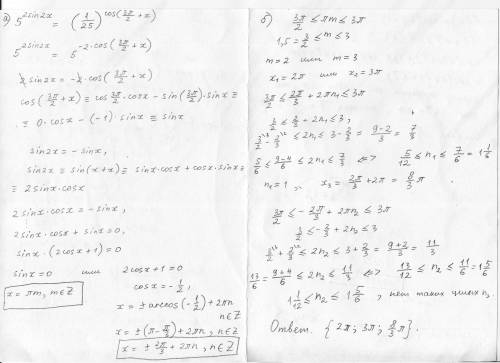 а) 5^(2sin2x) = (1/25)^(cos(3π/2 + x))
5^(2sin2x) = 5^(-2·cos(3π/2 + x))
2sin2x = -2·cos(3π/2 + x)
cos(3π/2 + x) ≡ cos 3π/2 · cosx - sin(3π/2)·sinx ≡
≡ 0·cosx - (-1)·sinx ≡ sinx
sin2x = -sinx,
sin2x ≡ sin(x+x) ≡ sinx·cosx + cosx·sinx ≡
≡ 2sinx·cosx
2sinx·cosx = -sinx,
2sinx·cosx + sinx = 0,
sinx·(2cosx+1) = 0
sinx = 0 или 2cosx+1 = 0
x = πm, m∈Z
cosx = -1/2,
x = ±arccos(-1/2) + 2πn
n∈Z
x = ±(π - π/3) + 2πn, n∈Z
x = ± 2π/3 + 2πn, n∈Z
б) 3π/2 ≤ πm ≤ 3π
1,5 = 3/2 ≤ m ≤ 3
m = 2 или m = 3
x₁ = 2π или x₂ = 3π
3π/2 ≤ 2π/3 + 2πn₁ ≤ 3π
3/2 ≤ 2/3 + 2n₁ ≤ 3,
3/2 - 2/3 ≤ 2n₁ ≤ 3 - 2/3 = (9-2)/3 = 7/3
5/6 = (9-4)/6 ≤ 2n₁ ≤ 7/3 <=> 5/12 ≤ n₁ ≤ 7/6 = 1 1/6
n₁ = 1, x₃ = 2π/3 + 2π = 8/3 π.
3π/2 ≤ -2π/3 + 2πn₂ ≤ 3π
3/2 ≤ -2/3 + 2n₂ ≤ 3
3/2 + 2/3 ≤ 2n₂ ≤ 3 + 2/3 = (9+2)/3 = 11/3
13/6 = (9+4)/6 ≤ 2n₂ ≤ 11/3 <=> 13/12 ≤ n₂ ≤ 11/6 = 1 5/6
1 1/12 ≤ n₂ ≤ 1 5/6, нет таких целых n₂.
Ответ. {2π; 3π; 8/3 π}.